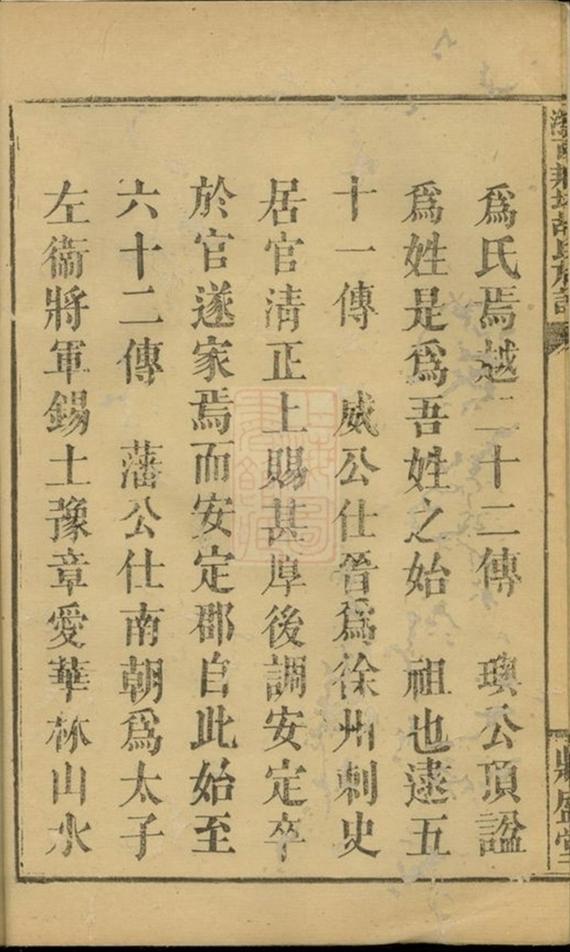 爲氏焉越二十二傳　璵公項諡
爲姓是爲吾姓之始　祖也逮五
十一傳　威公仕晉爲徐州刺史
居官清正上賜甚厚後調安定卒
於官遂家焉而安定郡自此始至
六十二傳　藩公仕南朝爲太子
左衞將軍錫土豫章愛華林山水
胡氏族譜
盛堂